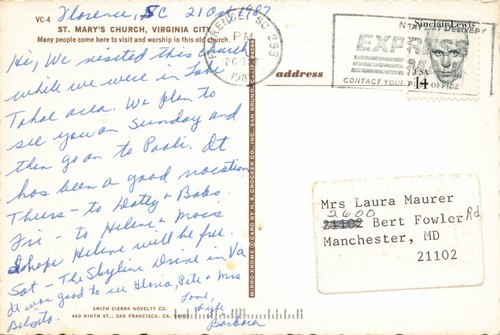 Florence, SC 21 Oct 1987
VC-4
ST. MARY'S CHURCH, VIRGINIA CITY
Many people come here to visit and worship in this old church.
Hi, We visited this church
while we were in Lake
Tahoe area. We plan to
see you on Sunday and
then go on to Paoli. It
has been a good vacation
Thurs - to Dotty & Bobs.
Fri to Helene & Moes
I hope Helene will be free.
Sat - The Skyline Drive in Va
It was good to see Gloria, Pete & Mrs
Belsito.
Love,
Barbara
SMITH SIERRA NOVELTY CO.
460 NINTH ST. SAN FRANCISCO, CA.
FLORENCE, SC 295
PM
1987
EXPRESS
NEXT DAY DELIVERY
CONTACT YOUR POST OFFICE
Sinclair Lewis
USA
14
address
Mrs Laura Maurer
2600
21102 Bert Fowler Rd
Manchester, MD
21102